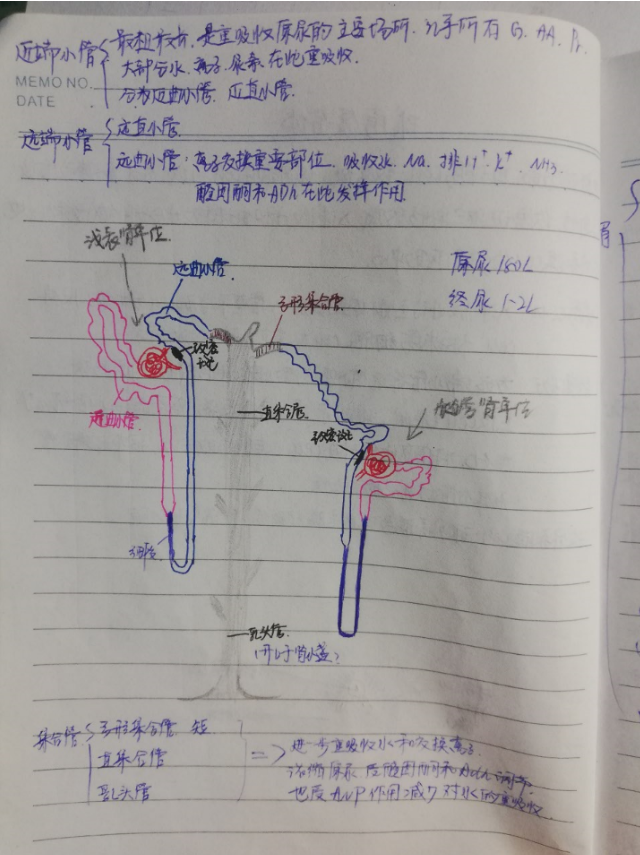 近端小管 最粗最长,是重吸收原尿的主要场所,几乎所有G. AA. Pr.
大部分水、离子、尿素在此重吸收.
分为近曲小管、近直小管.
MEMO NO.
DATE
远端小管 远直小管.
远曲小管:离子交换重要部位. 吸收水、Na. 排H⁺. K⁺. NH₃.
醛固酮和ADh在此发挥作用.
浅表肾单位
远曲小管
原尿 180L
终尿 1-2L
弓形集合管
致密斑
近曲小管
直集合管
致密斑
髓旁肾单位
细段
乳头管
(开口于肾小盏)
集合管 弓形集合管 短
直集合管
乳头管
=> 进一步重吸收水和交换离子
浓缩原尿 受醛固酮和Adh调节.
也受 作用减少对水的重吸收